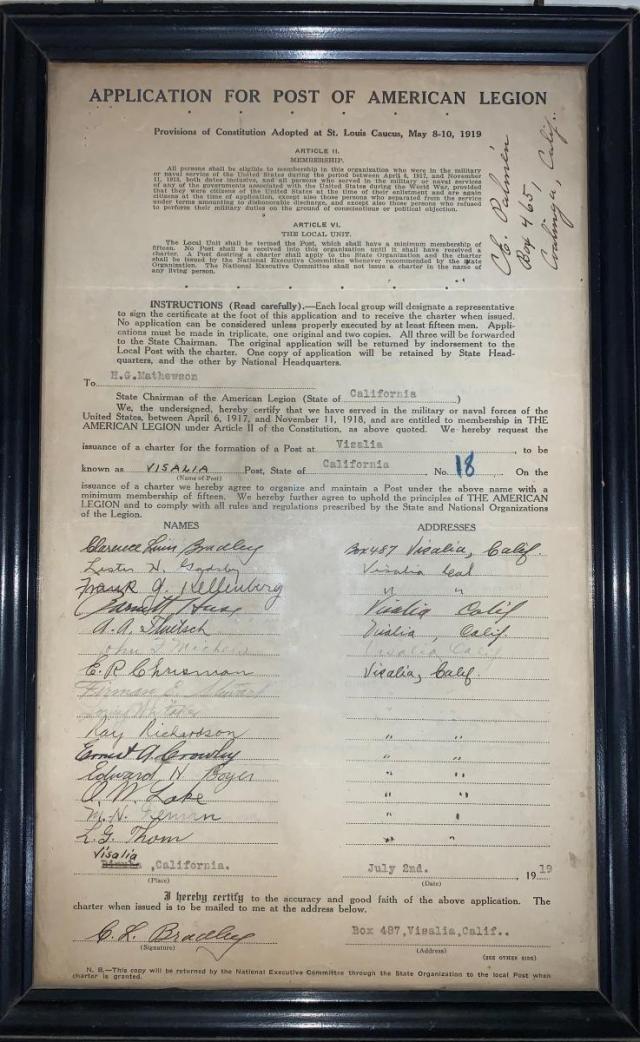 APPLICATION FOR POST OF AMERICAN LEGION
Provisions of Constitution Adopted at St. Louis Caucus, May 8-10, 1919
C.E. Palmer
Box 465,
Coalinga, Calif.
ARTICLE II.
MEMBERSHIP.
All persons shall be eligible to membership in this organization who were in the military
or naval service of the United States during the period between April 6, 1917, and November
11, 1918, both dates inclusive, and all persons who served in the military or naval services
of any of the governments associated with the United States during the World War, provided
that they were citizens of the United States at the time of their enlistment and are again
citizens at the time of application, except also those persons who separated from the service
under terms amounting to dishonorable discharge, and except also those persons who refused
to perform their military duties on the ground of conscientious or political objection.
ARTICLE VI.
THE LOCAL UNIT.
The Local Unit shall be termed the Post, which shall have a minimum membership of
fifteen. No Post shall be received into this organization until it shall have received a
charter. A Post desiring a charter shall apply to the State Organization and the charter
shall be issued by the National Executive Committee whenever recommended by the State
Organization. The National Executive Committee shall not issue a charter in the name of
any living person.
INSTRUCTIONS (Read carefully).—Each local group will designate a representative
to sign the certificate at the foot of this application and to receive the charter when issued.
No application can be considered unless properly executed by at least fifteen men. Appli-
cations must be made in triplicate, one original and two copies. All three will be forwarded
to the State Chairman. The original application will be returned by indorsement to the
Local Post with the charter. One copy of application will be retained by State Head-
quarters, and the other by National Headquarters.
To H.G.Mathewson
State Chairman of the American Legion (State of California)
We, the undersigned, hereby certify that we have served in the military or naval forces of the
United States, between April 6, 1917, and November 11, 1918, and are entitled to membership in THE
AMERICAN LEGION under Article II of the Constitution, as above quoted. We hereby request the
issuance of a charter for the formation of a Post at Visalia, to be
known as VISALIA Post, State of California No. 18 On the
(Name of Post)
issuance of a charter we hereby agree to organize and maintain a Post under the above name with a
minimum membership of fifteen. We hereby further agree to uphold the principles of THE AMERICAN
LEGION and to comply with all rules and regulations prescribed by the State and National Organizations
of the Legion.
NAMES ADDRESSES
Clarence Bradley Box 487 Visalia, Calif.
Lester N. Visalia Cal
Frank Kellenberg " "
Visalia Calif
A.A. Visalia, Calif.
John Visalia Calif
E.R. Chrisman Visalia, Calif.
Firman E.
Whitaker
Ray Richardson " "
Ernest A. Crowley " "
Edward H. Boyer " "
O.W. Lake " "
M.N. " "
L.G. Thom " "
Visalia
,California. July 2nd. 1919
(Place) (Date)
I hereby certify to the accuracy and good faith of the above application. The
charter when issued is to be mailed to me at the address below.
C. L. Bradley Box 487,Visalia,Calif..
(Signature) (Address)
(SEE OTHER SIDE)
N. B.—This copy will be returned by the National Executive Committee through the State Organization to the local Post when
charter is granted.